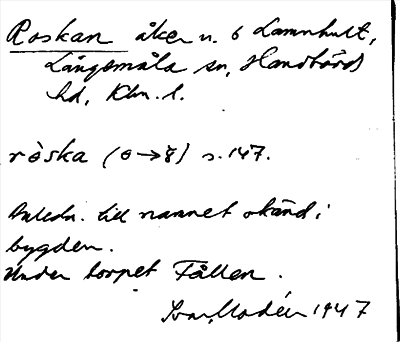 Roskan åker n. 6 Lammhult,
Långemåla sn, Handbörds
hd, Klm. l.
ròska (o→ŏ) s. 147.
Anledn. till namnet okänd i
bygden.
Under torpet Fållen.
Ivar Modéer 1947